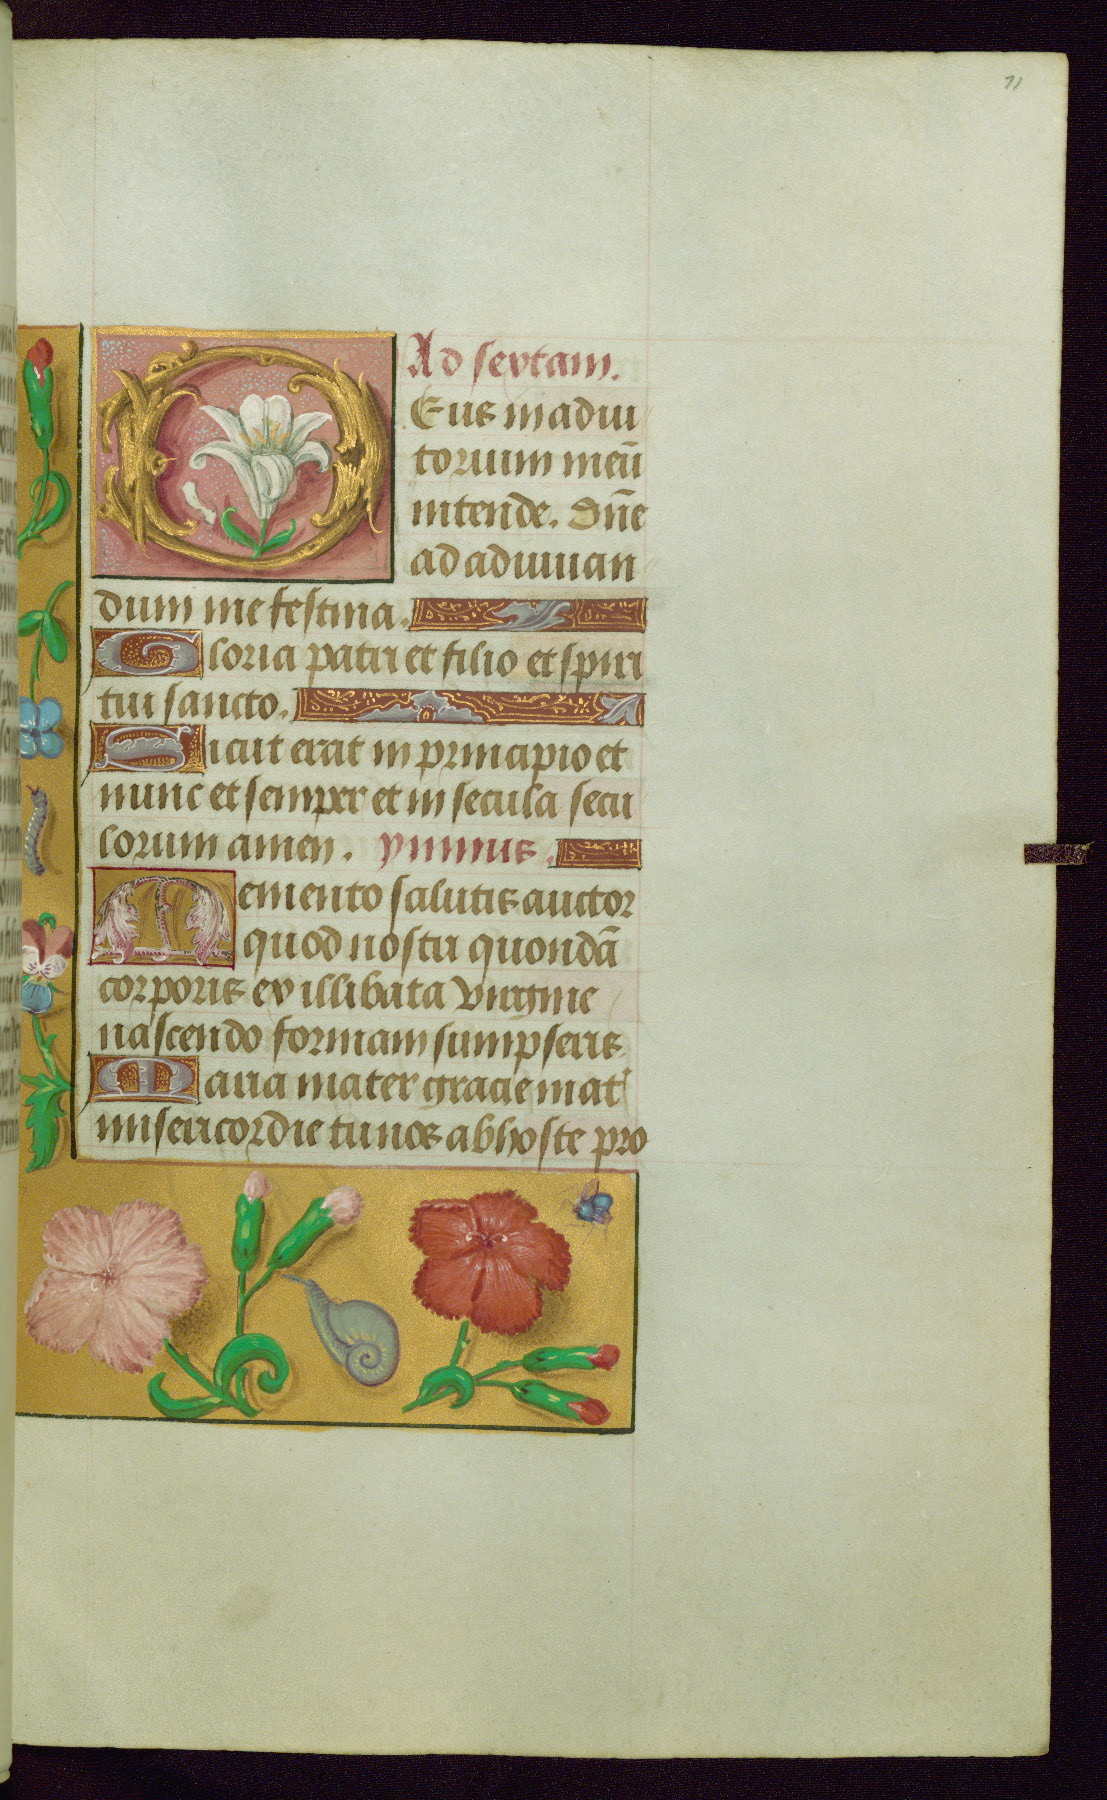 71
Ad sextam.
Deus in adiu
torium meū
intende. Dn̄e
ad adiuuan
dum me festina.
Gloria patri et filio et spiri
tui sancto.
Sicut erat in principio et
nunc et semper et in secula secu
lorum amen. ymnus.
Memento salutis auctor
quod nostri quondā
corporis ex illibata virgine
nascendo formam sumpseris
Maria mater gracie mat᷑
misericordie tu nos ab hoste pro